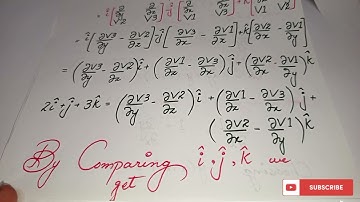 = î [∂/∂ ∂/∂ V2 V3] j [∂/∂x V3] k [∂ ∂ V1 V1]
= î [∂V3/∂y - ∂V2/∂z] - j [∂V3/∂x - ∂V1/∂z] + k [∂V2/∂x - ∂V1/∂y]
= (∂V3/∂y - ∂V2/∂z) î + (∂V1/∂z - ∂V3/∂x) ĵ + (∂V2/∂x - ∂V1/∂y) k̂
2î + ĵ + 3k̂ = (∂V3/∂y - ∂V2/∂z) î + (∂V1/∂z - ∂V3/∂x) ĵ +
(∂V2/∂x - ∂V1/∂y) k̂
By Comparing î, ĵ, k̂ we
get
SUBSCRIBE